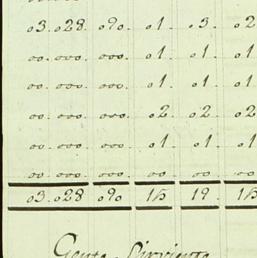 03. 028. 090. 01. 03. 02
00. 000. 000. 01. 01. 01
00. 000. 000. 01. 01. 01
00. 000. 000. 02. 02. 02
00. 000. 000. 01. 01. 01
00. 000. 000. 00. 00. 00
03. 028. 090. 15 19. 15
Gente Sirviente